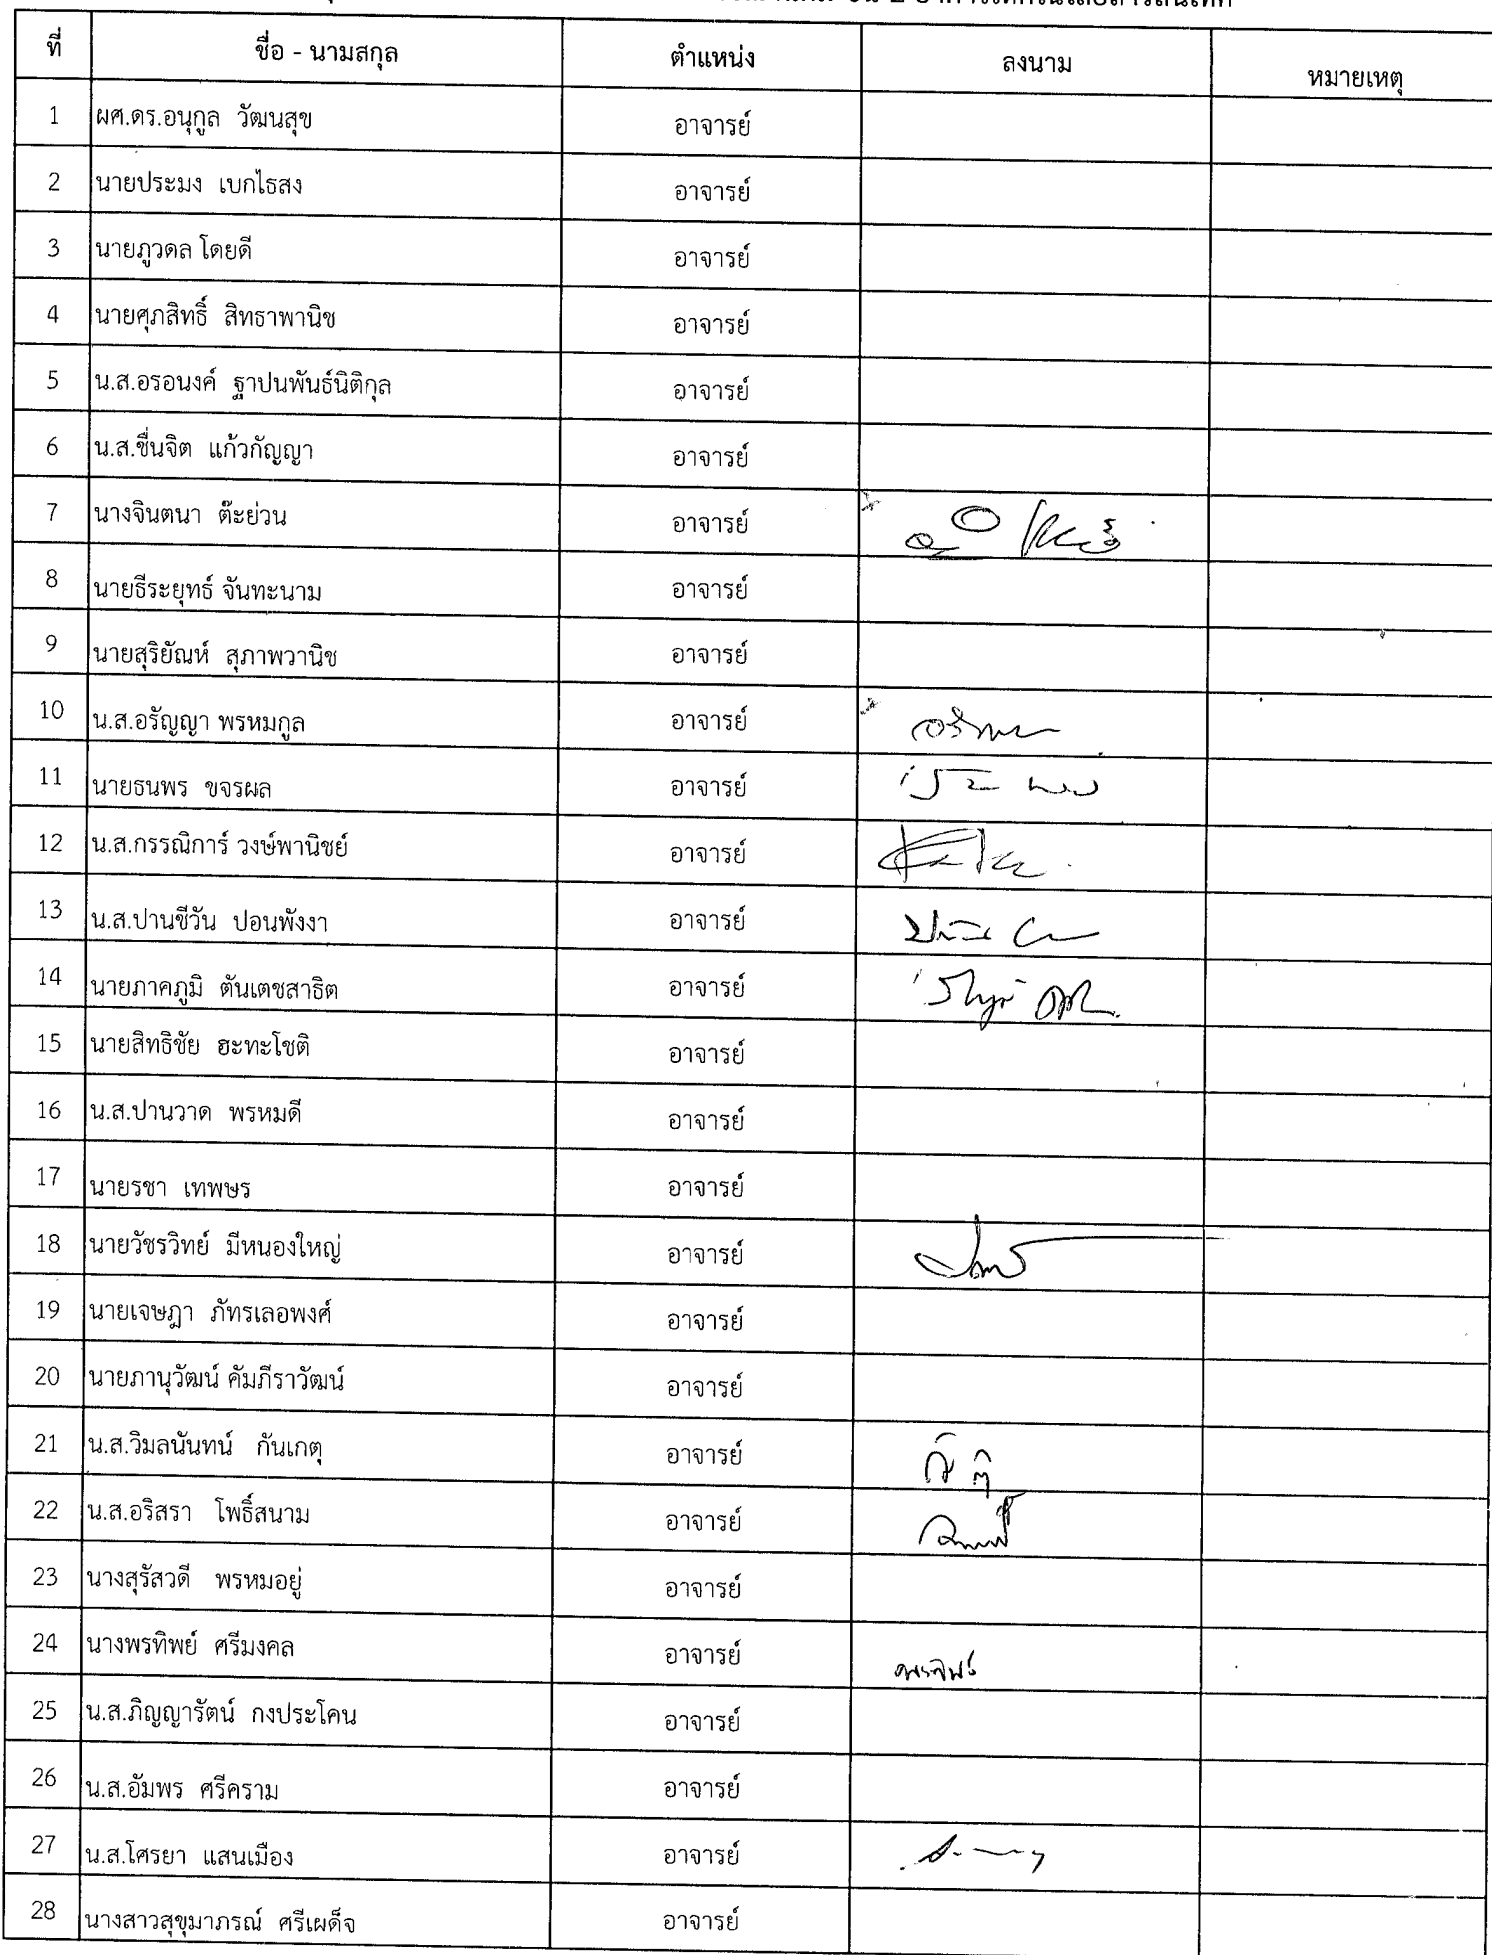 ที่ ชื่อ - นามสกุล ตำแหน่ง ลงนาม หมายเหตุ
1 ผศ.ดร.อนุกูล วัฒนสุข อาจารย์
2 นายประมง เบกไธสง อาจารย์
3 นายภูวดล โดยดี อาจารย์
4 นายศุภสิทธิ์ สิทธาพานิช อาจารย์
5 น.ส.อรอนงค์ ฐาปนพันธ์นิติกุล อาจารย์
6 น.ส.ชื่นจิต แก้วกัญญา อาจารย์
7 นางจินตนา ต๊ะย่วน อาจารย์
8 นายธีระยุทธ์ จันทะนาม อาจารย์
9 นายสุริยัณห์ สุภาพวานิช อาจารย์
10 น.ส.อรัญญา พรหมกูล อาจารย์
11 นายธนพร ขจรผล อาจารย์
12 น.ส.กรรณิการ์ วงษ์พานิชย์ อาจารย์
13 น.ส.ปานชีวัน ปอนพังงา อาจารย์
14 นายภาคภูมิ ตันเตชสาธิต อาจารย์
15 นายสิทธิชัย ฮะทะโชติ อาจารย์
16 น.ส.ปานวาด พรหมดี อาจารย์
17 นายรชา เทพษร อาจารย์
18 นายวัชรวิทย์ มีหนองใหญ่ อาจารย์
19 นายเจษฎา ภัทรเลอพงศ์ อาจารย์
20 นายภานุวัฒน์ คัมภีราวัฒน์ อาจารย์
21 น.ส.วิมลนันทน์ กันเกตุ อาจารย์
22 น.ส.อริสรา โพธิ์สนาม อาจารย์
23 นางสุรัสวดี พรหมอยู่ อาจารย์
24 นางพรทิพย์ ศรีมงคล อาจารย์
25 น.ส.ภิญญารัตน์ กงประโคน อาจารย์
26 น.ส.อัมพร ศรีคราม อาจารย์
27 น.ส.โศรยา แสนเมือง อาจารย์
28 นางสาวสุขุมาภรณ์ ศรีเผด็จ อาจารย์